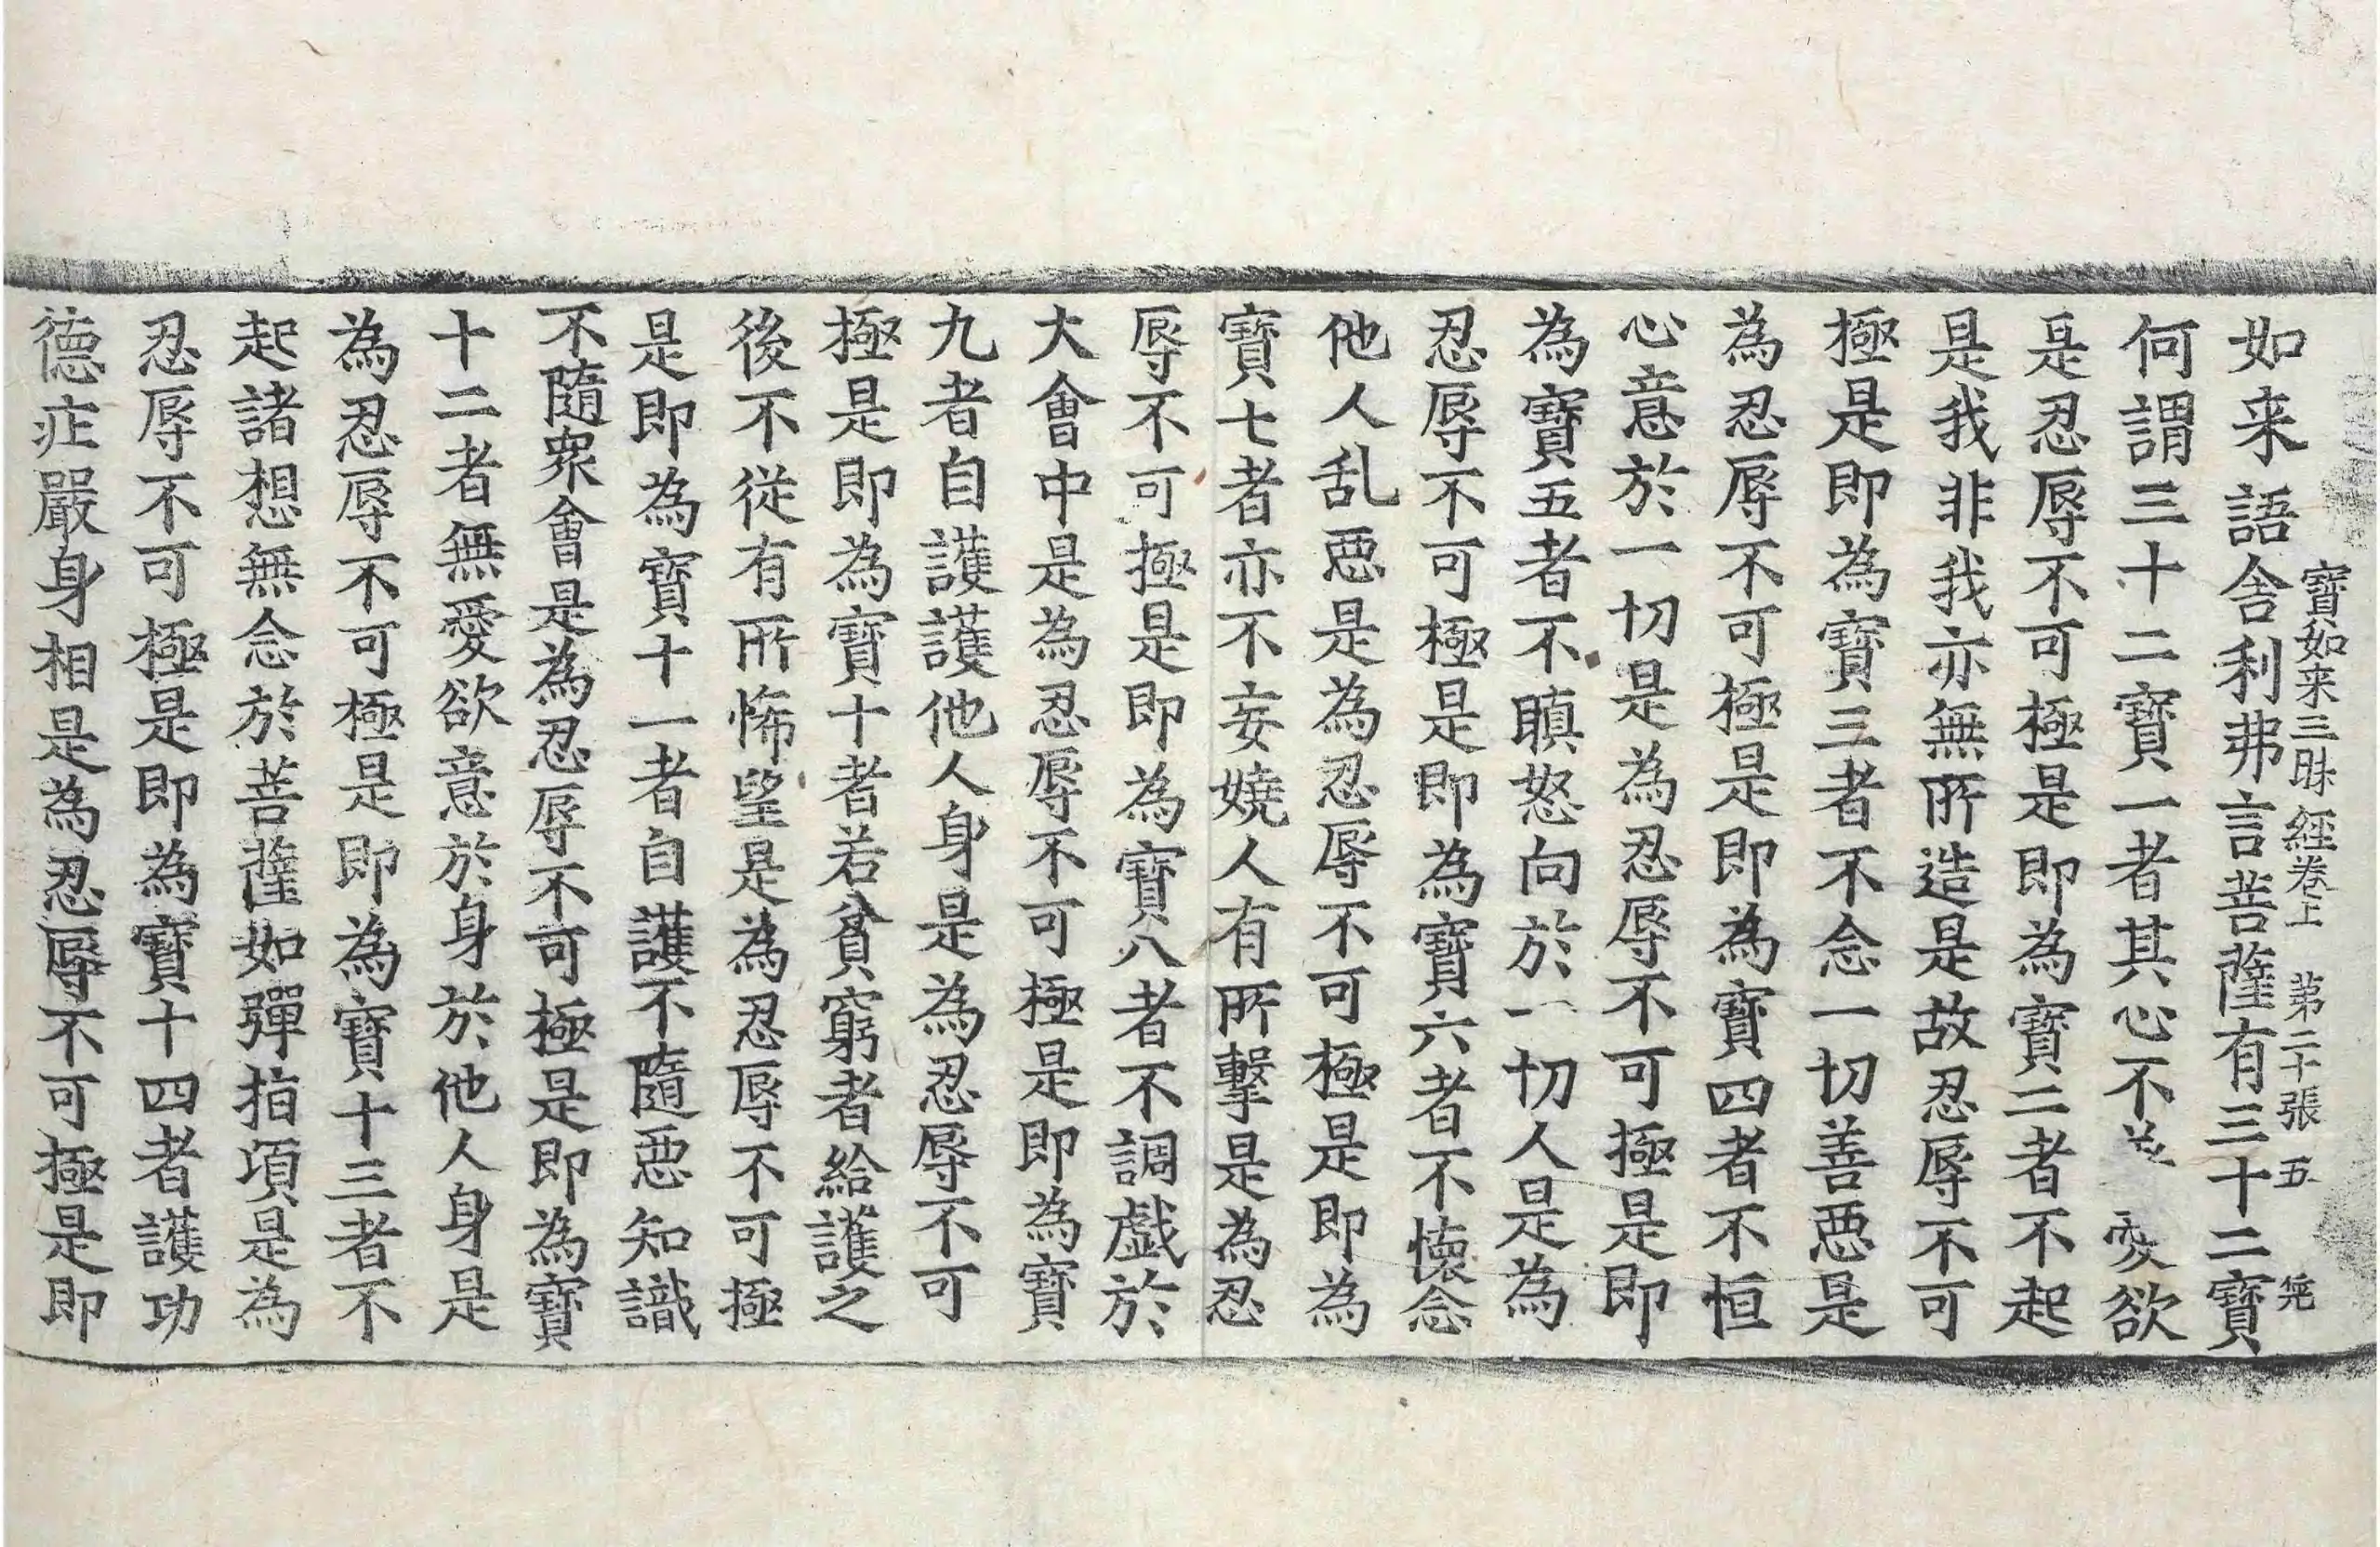 寶如来三昧經卷上 苐二十張 五
如来語舍利弗言菩薩有三十二寶
何謂三十二寶一者其心不 愛欲
是忍辱不可極是即為寶二者不起
是我非我亦無所造是故忍辱不可
極是即為寶三者不念一切善惡是
為忍辱不可極是即為寶四者不恒
心意於一切是為忍辱不可極是即
為寶五者不瞋怒向於一切人是為
忍辱不可極是即為寶六者不懷念
他人乱惡是為忍辱不可極是即為
寶七者亦不妄嬈人有所擊是為忍
辱不可極是即為寶八者不調戲於
大會中是為忍辱不可極是即為寶
九者自護護他人身是為忍辱不可
極是即為寶十者若貧窮者給護之
後不從有所悕望是為忍辱不可極
是即為寶十一者自護不隨惡知識
不隨衆會是為忍辱不可極是即為寶
十二者無愛欲意於身於他人身是
為忍辱不可極是即為寶十三者不
起諸想無念於菩薩如彈指項是為
忍辱不可極是即為寶十四者護功
德庄嚴身相是為忍辱不可極是即